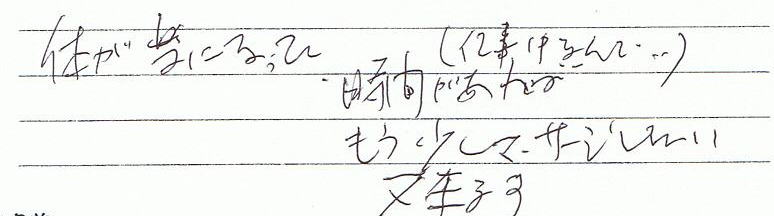 体が楽になった (仕事中なんで…)
時間があれば
もう少しマッサージしたい
又来ます